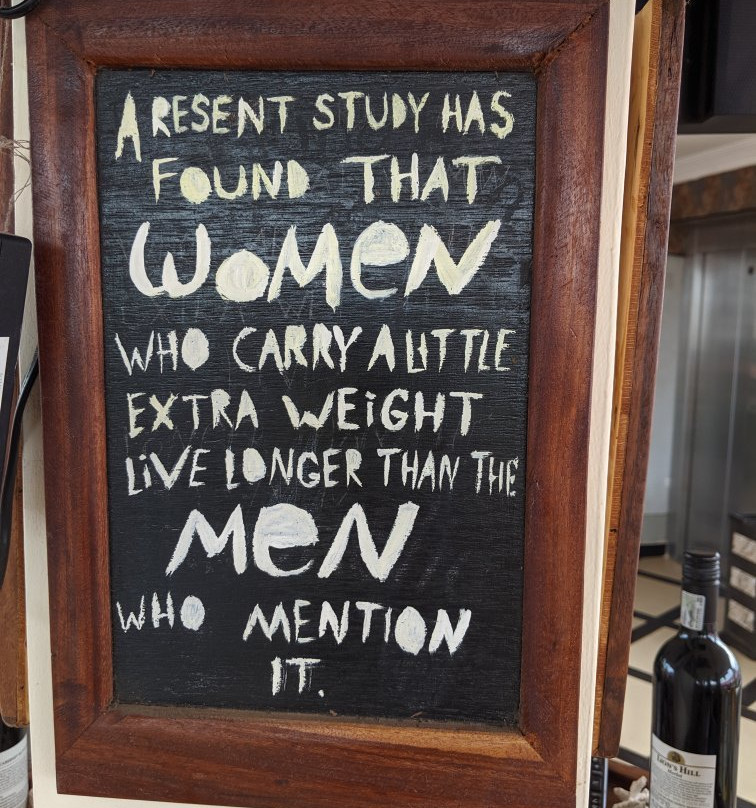 A RESENT STUDY HAS
FOUND THAT
WOMEN
WHO CARRY A LITTLE
EXTRA WEIGHT
LIVE LONGER THAN THE
MEN
WHO MENTION
IT.
LION'S HILL